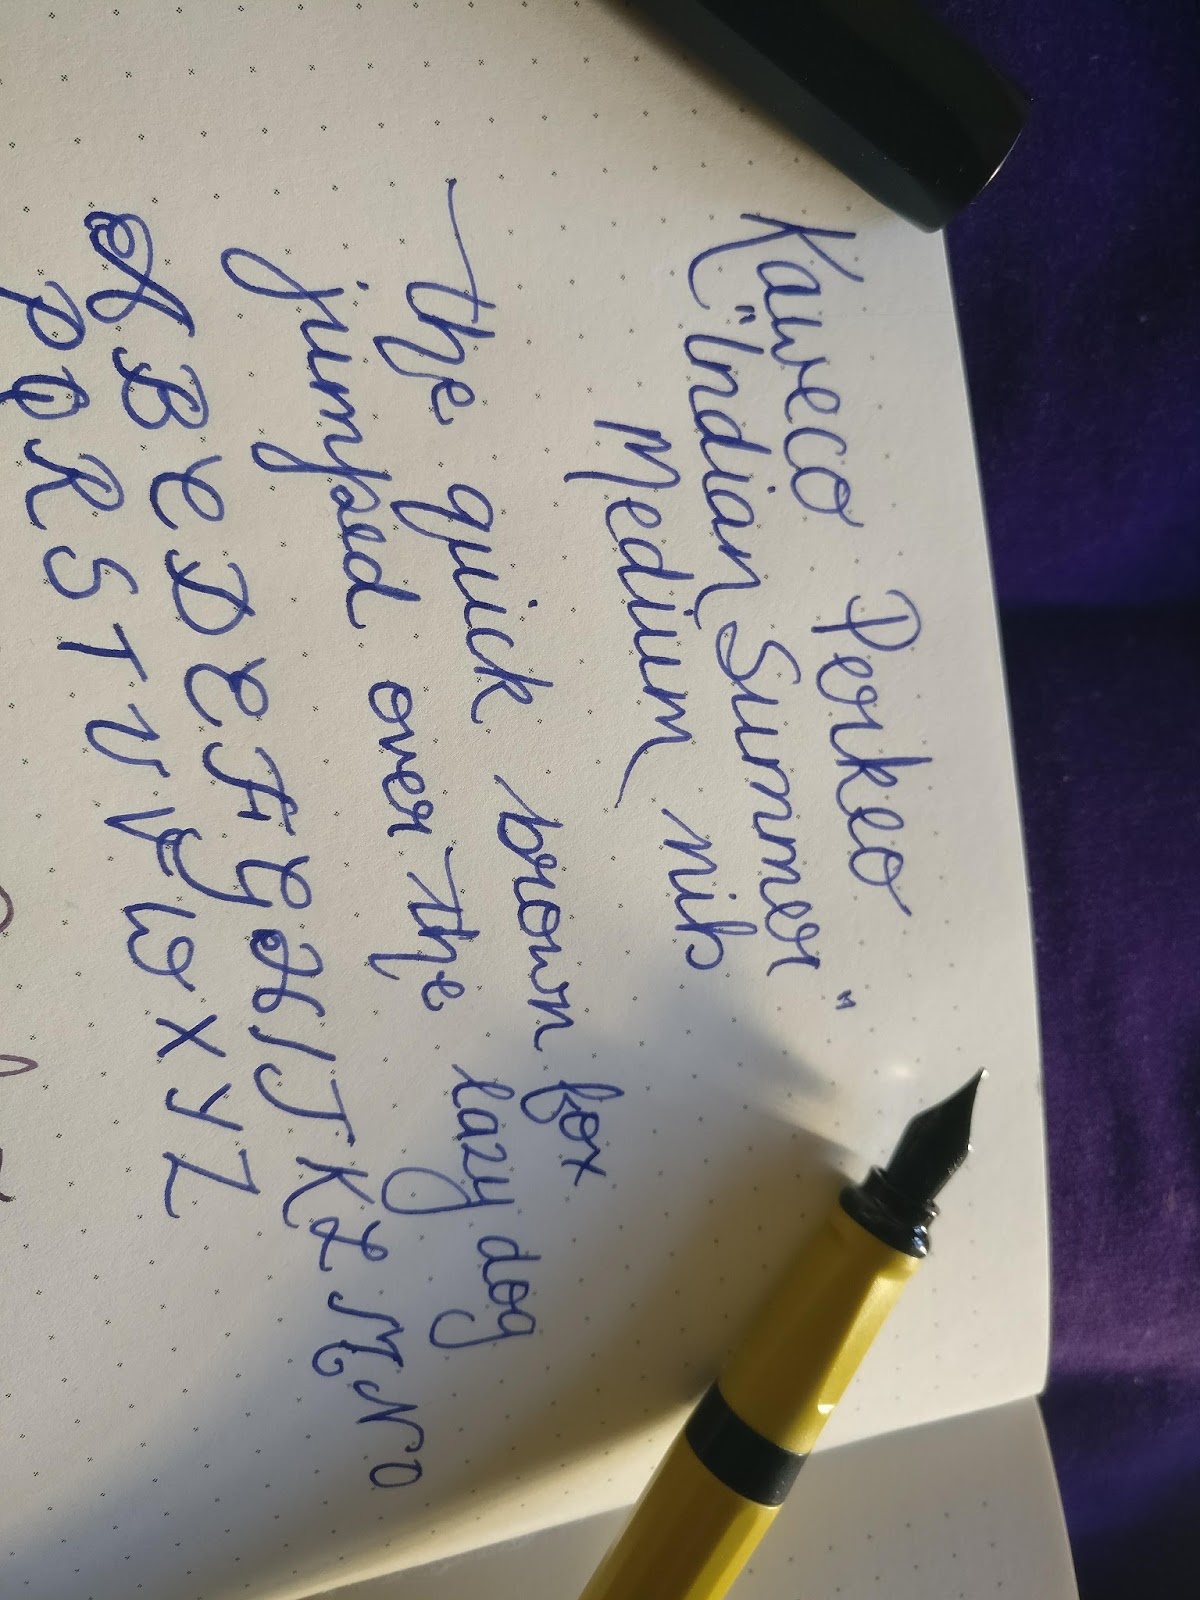 Kaweco Perkeo
"Indian Summer"
Medium nib
the quick brown fox
jumped over the lazy dog
A B C D E F G H I J K L M N O
P Q R S T U V W X Y Z